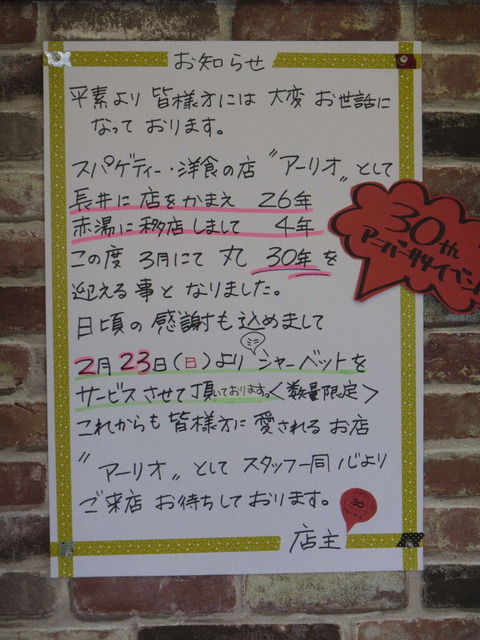 お知らせ
平素より 皆様方には 大変 お世話に
なって おります。
スパゲティー・洋食の店 〝アーリオ〟として
長井に 店をかまえ 26年
赤湯に移店しまして 4年
この度 3月にて 丸 30年を
迎える事と なりました。
日頃の 感謝も 込めまして
2月23日(日)より ミニ シャーベットを
サービスさせて頂いております。<数量限定>
これからも 皆様方に 愛される お店
〝アーリオ〟として スタッフ一同 心より
ご来店 お待ちしております。
店主
30th
アニバーサリーイベント
30